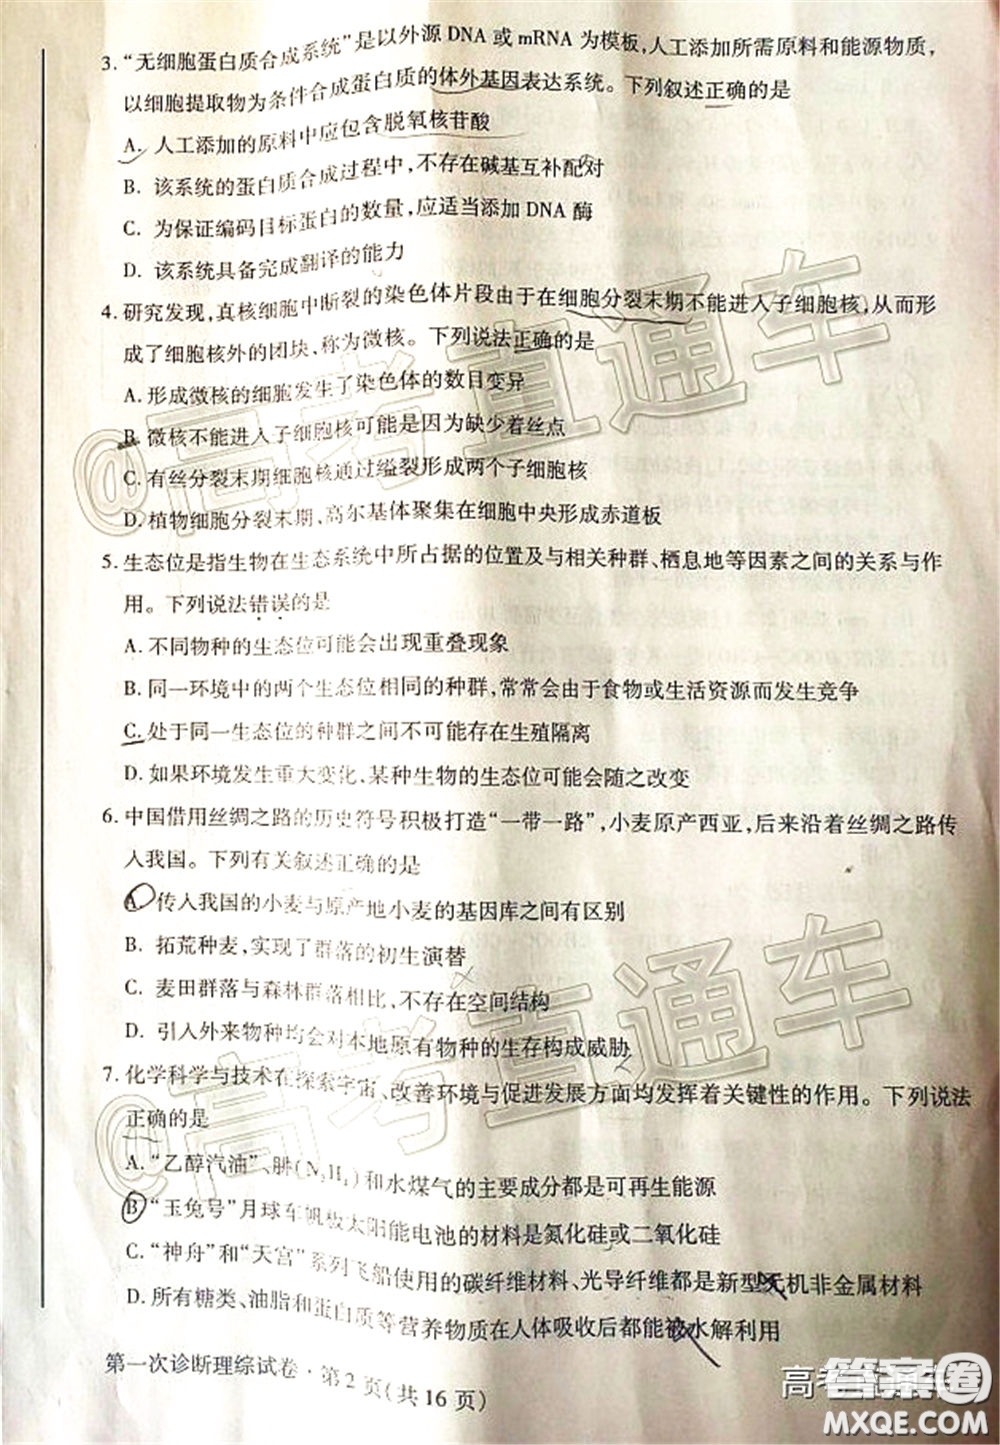 3. “无细胞蛋白质合成系统”是以外源 DNA 或 mRNA 为模板,人工添加所需原料和能源物质,
以细胞提取物为条件合成蛋白质的体外基因表达系统。下列叙述正确的是
A. 人工添加的原料中应包含脱氧核苷酸
B. 该系统的蛋白质合成过程中,不存在碱基互补配对
C. 为保证编码目标蛋白的数量,应适当添加 DNA 酶
D. 该系统具备完成翻译的能力
4. 研究发现,真核细胞中断裂的染色体片段由于在细胞分裂末期不能进入子细胞核,从而形
成了细胞核外的团块,称为微核。下列说法正确的是
A. 形成微核的细胞发生了染色体的数目变异
B. 微核不能进入子细胞核可能是因为缺少着丝点
C. 有丝分裂末期细胞核通过缢裂形成两个子细胞核
D. 植物细胞分裂末期,高尔基体聚集在细胞中央形成赤道板
5. 生态位是指生物在生态系统中所占据的位置及与相关种群、栖息地等因素之间的关系与作
用。下列说法错误的是
A. 不同物种的生态位可能会出现重叠现象
B. 同一环境中的两个生态位相同的种群,常常会由于食物或生活资源而发生竞争
C. 处于同一生态位的种群之间不可能存在生殖隔离
D. 如果环境发生重大变化,某种生物的生态位可能会随之改变
6. 中国借用丝绸之路的历史符号积极打造“一带一路”,小麦原产西亚,后来沿着丝绸之路传
入我国。下列有关叙述正确的是
A. 传入我国的小麦与原产地小麦的基因库之间有区别
B. 拓荒种麦,实现了群落的初生演替
C. 麦田群落与森林群落相比,不存在空间结构
D. 引入外来物种均会对本地原有物种的生存构成威胁
7. 化学科学与技术在探索宇宙、改善环境与促进发展方面均发挥着关键性的作用。下列说法
正确的是
A. “乙醇汽油”、肼(N₂H₄)和水煤气的主要成分都是可再生能源
B. “玉兔号”月球车帆板太阳能电池的材料是氮化硅或二氧化硅
C. “神舟”和“天宫”系列飞船使用的碳纤维材料、光导纤维都是新型无机非金属材料
D. 所有糖类、油脂和蛋白质等营养物质在人体吸收后都能被水解利用
第一次诊断理综试卷 · 第 2 页(共 16 页)
@高考直通车
@高考直通车
答案圈
MXQE.COM